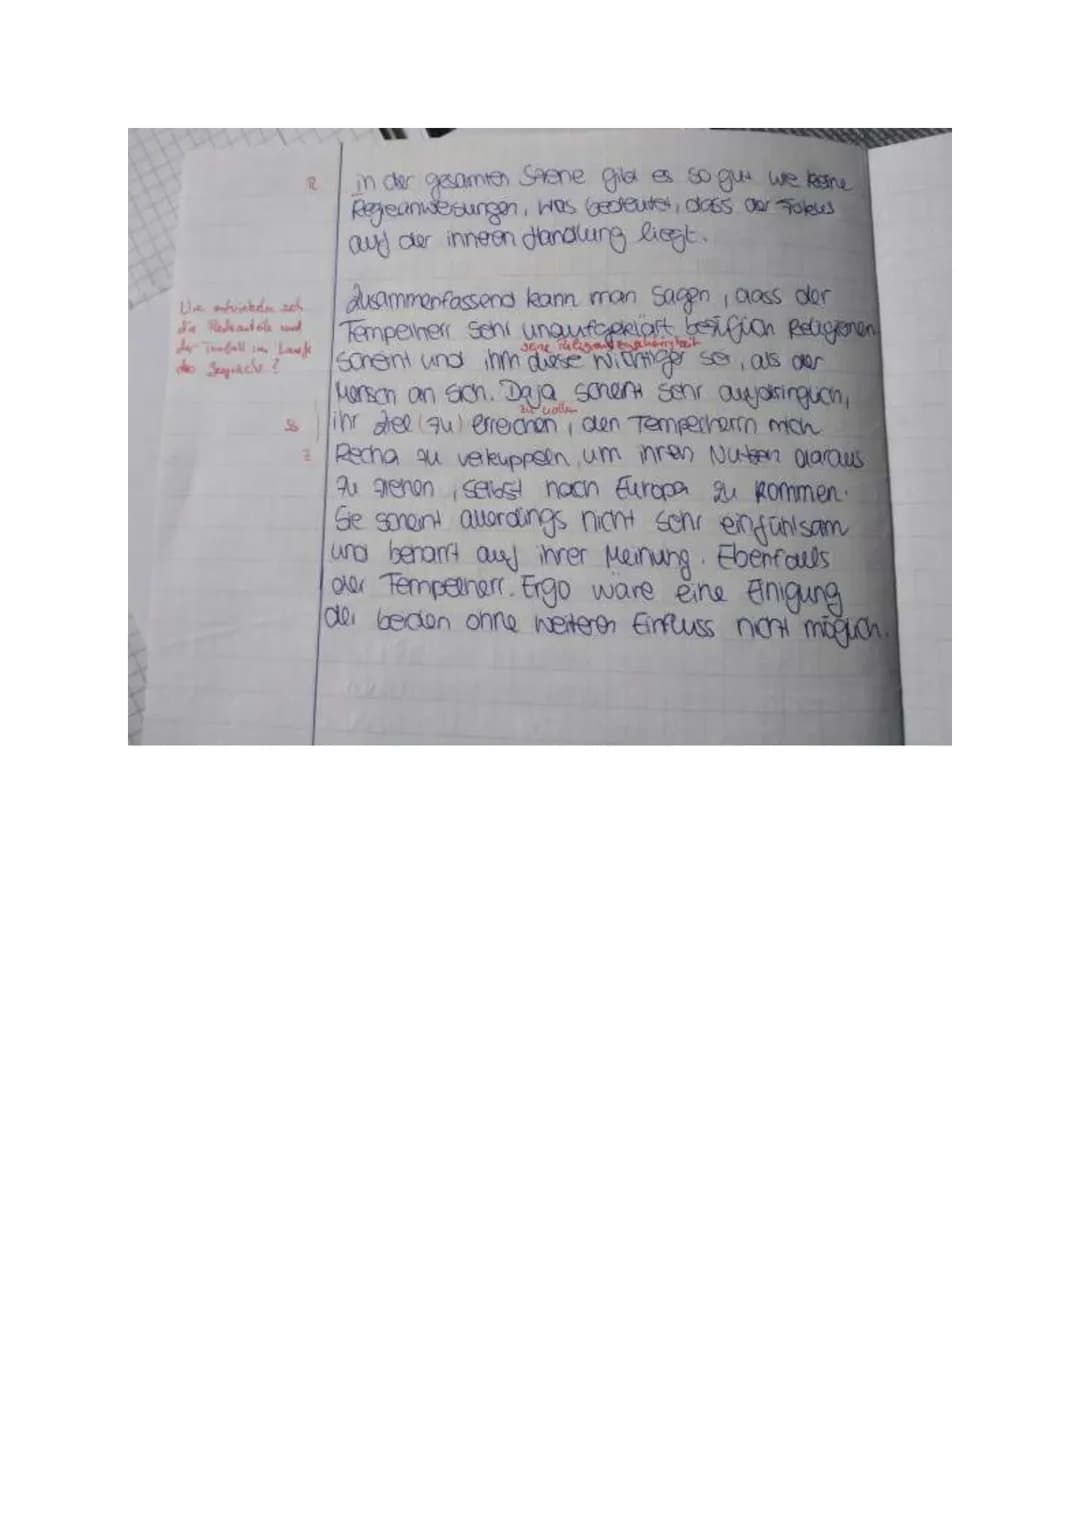 R
in der gesamten Szene gibt es so gut wie keine
Regieanweisungen, was bedeutet, dass der Fokus
auf der inneren Handlung liegt.
Zusammenfassend kann man sagen, dass der
Tempelherr sehr unaufgeklärt bezüglich Religionen
seine Religionszugehörigkeit
scheint und ihm diese wichtiger sei, als der
Mensch an sich. Daja scheint sehr aufdringlich,
zu wollen
ihr Ziel (zu) erreichen, den Tempelherrn mich
Recha zu verkuppeln, um ihren Nutzen daraus
zu ziehen, selbst nach Europa zu kommen.
Sie scheint allerdings nicht sehr einfühlsam
und beharrt auf ihrer Meinung. Ebenfalls
der Tempelherr. Ergo wäre eine Einigung
der beiden ohne weiteren Einfluss nicht möglich.
Wie entwickeln sich
die Redeanteile und
der Tonfall im Laufe
des Gesprächs?
Sb
Z